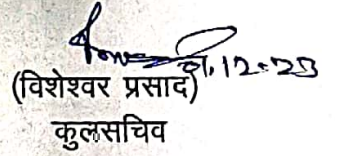 12.23
(विशेश्वर प्रसाद)
कुलसचिव